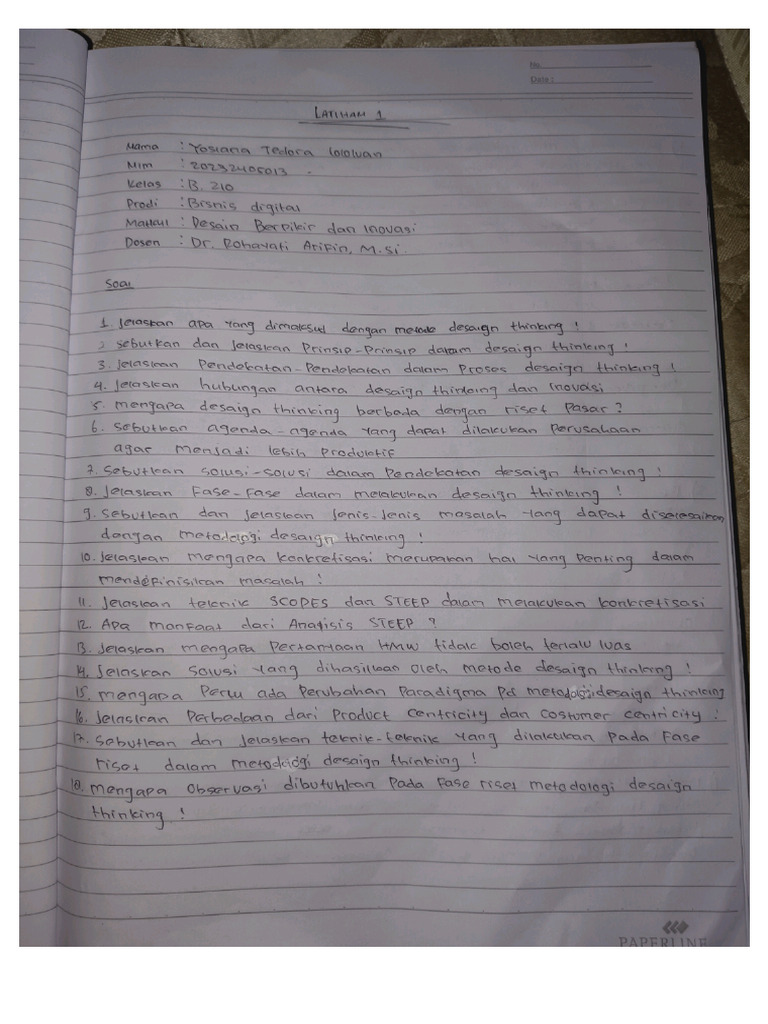 No
Date :
LATIHAN 1
Nama : Yosiana Tedora Lololuan
Nim : 20232405013
Kelas : B. 210
Prodi : Bisnis digital
Matkul : Desain Berpikir dan Inovasi
Dosen : Dr. Rohayati Arifin, M.Si.
Soal
1. Jelaskan apa yang dimaksud dengan metode desaign thinking !
2. Sebutkan dan Jelaskan Prinsip-Prinsip dalam desaign thinking !
3. Jelaskan Pendekatan-Pendekatan dalam Proses desaign thinking !
4. Jelaskan hubungan antara desaign thinking dan Inovasi
5. mengapa desaign thinking berbeda dengan riset Pasar ?
6. Sebutkan agenda-agenda yang dapat dilakukan Perusahaan
agar menjadi lebih Produktif
7. Sebutkan solusi-solusi dalam Pendekatan desaign thinking !
8. Jelaskan Fase-Fase dalam melakukan desaign thinking !
9. Sebutkan dan Jelaskan Jenis-Jenis masalah yang dapat diselesaikan
dengan metodologi desaign thinking !
10. Jelaskan mengapa konkretisasi merupakan hal yang Penting dalam
mendefinisikan masalah !
11. Jelaskan teknik SCOPES dan STEEP dalam melakukan konkretisasi
12. Apa manfaat dari Analisis STEEP ?
13. Jelaskan mengapa Pertanyaan HMW tidak boleh terlalu luas
14. Jelaskan Solusi yang dihasilkan oleh metode desaign thinking !
15. mengapa Perlu ada Perubahan Paradigma Pd metodologi desaign thinking
16. Jelaskan Perbedaan dari Product Centricity dan Costumer centricity !
17. Sebutkan dan Jelaskan teknik-teknik yang dilakukan Pada Fase
riset dalam metodologi desaign thinking !
18. mengapa Observasi dibutuhkan Pada Fase riset metodologi desaign
thinking !
PAPERLINE